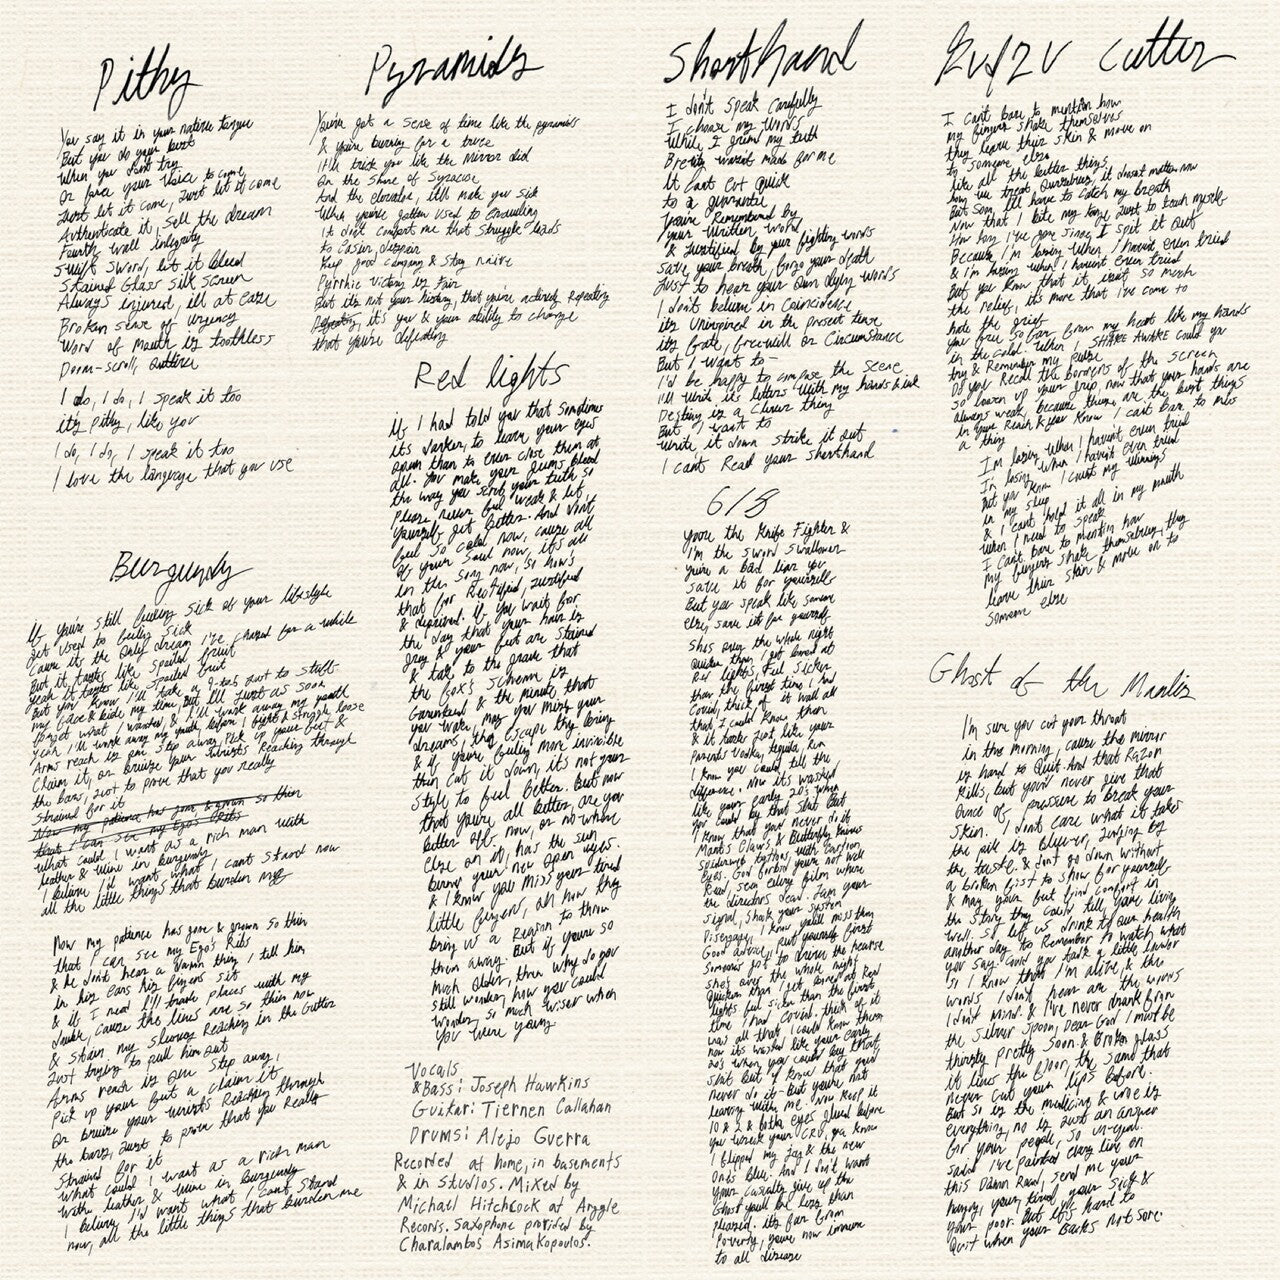 Pithy
You say it in your native tongue
But you do your best
When you don't try
Or force your voice to come
Just let it come, Just let it come
Authenticate it, sell the dream
Fourth wall integrity
Swift sword, let it bleed
Stained Glass silk screen
Always injured, ill at ease
Broken sense of urgency
Word of Mouth is toothless
Doom-scroll, Quitline
I do, I do, I speak it too
it's pithy, like you
I do, I do, I speak it too
I love the language that you use
Burgundy
If you're still feeling sick of your lifestyle
get used to feeling sick
Cause it's the only dream I've chased for a while
But it tastes like spoiled fruit
yeah it tastes like spoiled fruit
But you know I'll take a Q-tab just to stuff
my face & bide my time, But I'll just as soon
forget what I wanted, & I'll work away my youth
yeah, I'll work away my youth, before I fight & struggle loose
Arms reach is one step away, Pick up your feet &
Claim it, or bruise your wrists Reaching through
the bars, just to prove that you really
strained for it
Now my patience has gone & grown so thin
that I can see my Ego's Ribs
what could I want as a rich man with
leather & wine in burgundy
I believe I'd want what I cant stand now
all the little things that burden me
Now my patience has gone & grown so thin
that I can see my Ego's Ribs
& he dont hear a damn thing I tell him
in his ears his fingers sit
& if I need I'll trade places with my
double, cause the lines are so thin now
& stain my sleeves Reaching in the Gutter
Just trying to pull him out
Arms reach is one step away,
Pick up your feet & claim it
Or bruise your wrists Reaching through
the bars, just to prove that you Really
strained for it
what could I want as a rich man
with leather & wine in Burgundy
I believe I'd want what I cant stand
now, all the little things that burden me
Pyramids
You've got a sense of time like the pyramids
& you're burning for a truce
it'll trick you like the Mirror did
On the Shore of Syracuse
And the elevator, it'll make you sick
When you've gotten used to crawling
It don't comfort me that struggle leads
to Easier despair
Keep good company & Stay naive
Pyrrhic victory is fair
But its not your history, that you're actively Repeating
it's you & your ability to change
that you're defeating
Red lights
If I had told you that Sometimes
its darker, to leave your eyes
open than to ever close them at
all. You make your gums bleed
the way you scrub your teeth so
Please never feel weak & let
yourself get Better. And don't
feel so cold now, cause all
of your Soul now, it's all
in the song now, so how's
that for Rectified, justified
& deprived. If you wait for
the day that your hair is
grey & your feet are stained
& take to the grave that
the fox's scheme is
Guaranteed & the minute that
you wake, may you miss your
dreams, they escape thy being
& if you're feeling more invincible
then cut it down, it's not your
style to feel better. But now
that you're all better, are you
better off now, or no where
else on it, has the sun
burned your now open eyes.
& I know you Miss your tired
little fingers, oh how they
bring us a Reason to throw
them away. But if you're so
much older, then why do you
still wonder how you could
wonder, so much wiser when
you were young
Vocals
& Bass: Joseph Hawkins
Guitar: Tiernen Callahan
Drums: Alejo Guerra
Recorded at home, in basements
& in Studios. Mixed by
Michael Hitchcock at Argyle
Records. Saxophone provided by
Charalambos Asimakopoulos.
Shorthand
I don't speak carefully
I choose my words
While I grind my teeth
Brevity wasn't made for me
It cant cut quick
to a guarantee
You're Remembered by
your written word
& justified by your fighting words
save your breath, forgo your death
Just to hear your Own dying words
I don't believe in Coincidence
its Uninspired in the present tense
its fate, free-will or Circumstance
But I want to-
I'd be happy to compose the scene
I'll write its letters with my hands & ink
Destiny is a Clever thing
But I want to
write it down strike it out
I cant Read your shorthand
6/8
you're the Knife Fighter &
I'm the sword swallower
you're a bad liar you
save it for yourself
But you speak like someone
else, save it for yourself
Shes over the whole night
Quicker than I get bored at
Red lights, Feel sicker
than the first time I had
Covid, think of it wall all
that I could know then
& it tastes just like your
Parents' vodka, tequila, Rum
I know you could tell the
difference. Now its washed
like your early 20's when
You could by that shit But
I know that you never do it
Mantis Claws & Butterfly knives
spiderweb tights, with cartoon
Eyes. God forbid you're not well
Read, seen every film where
the directors dead. Jam your
signal, Shake your system
Disengage, I know you'll miss them
Good advice, put yourself first
Someones got to drive the hearse
she's over the whole night
Quicker than I get bored at Red
lights feel sicker than the first
time I had Covid, think of it
was all that I could know then
now its washed like your early
20's when you could buy that
shit but I know that you'd
never do it- But you're not
leaving with me. Now keep it
10 & 2 & both eyes glued before
you wreck your CRV, ya know
I flipped my Jag & the new
Ones blue. And I don't want
your casualty give up the
Ghost you'll be less than
pleased. its far from
Poverty, you're now immune
to all disease
Kudzu Cutter
I Can't bare to mention how
my fingers shake themselves
they leave their skin & move on
to someone else
like all the better things
how we treat Ourselves, it doesnt matter now
But soon I'll have to catch my breath
Now that I bite my tongue Just to teach myself
How long I've gone since, I spit it out
Because I'm losing When I havent even tried
& I'm losing when I havent even tried
But you know that it, isnt so much
the relief, it's more that I've come to
hate the grief
you feel so far from my heart like my hands
in the cold. When I SHAKE AWAKE could you
try & Remember my pulse
Do you Recall the borders of the screen
so loosen up your grip, now that your hands are
always weak, because these are the best things
in your Reach & you Know I cant bare to miss
a thing
I'm losing when I havent even tried
I'm losing when I havent even tried
But you know I count my winnings
in my sleep
& I cant hold it all in my mouth
When I need to speak
I Cant bare to mention how
my fingers shake themselves they
leave their skin & move on to
someone else
Ghost of the Mantis
I'm sure you cut your throat
in the morning, cause the mirror
is hard to Quit. And that Razor
kills, but you'd never give that
ounce of pressure to break your
skin. I dont care what it takes
the pill is Bluer, judging by
the taste. & dont go down without
a broken fist to show for yourself
& may your feet find comfort in
the story they could tell, you're living
well. So let us drink to our health
another day to Remember to watch what
you say. Could you talk a little louder
so I know that I'm alive, & the
words I don't hear are the words
I don't Mind. & I've never drank from
the Silver Spoon, Dear God I must be
thirsty pretty soon & Broken glass
it lines the floor, the same that
never cut your lips before.
But so is the medicine & wine is
everything, no is just an answer
for your people, so un-equal
said I've painted every line on
this Damn Road, send me your
hungry, your tired, your sick &
your poor. But it's hard to
Quit when your Backs not sore.